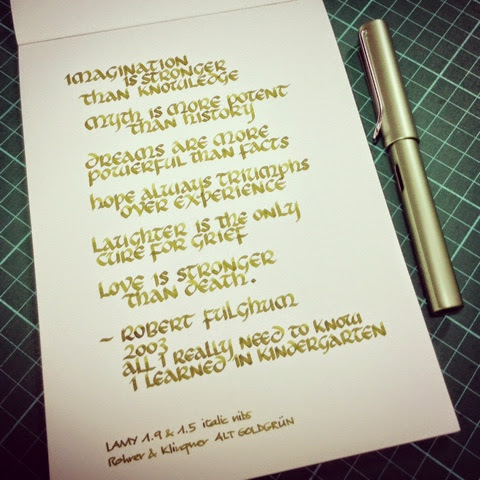 IMAGINATION
IS STRONGER
THAN KNOWLEDGE
MYTH IS MORE POTENT
THAN HISTORY
DREAMS ARE MORE
POWERFUL THAN FACTS
HOPE ALWAYS TRIUMPHS
OVER EXPERIENCE
LAUGHTER IS THE ONLY
CURE FOR GRIEF
LOVE IS STRONGER
THAN DEATH.
~ ROBERT FULGHUM
2003
ALL I REALLY NEED TO KNOW
I LEARNED IN KINDERGARTEN
LAMY 1.9 & 1.5 italic nibs
Rohrer & Klingner ALT GOLDGRÜN